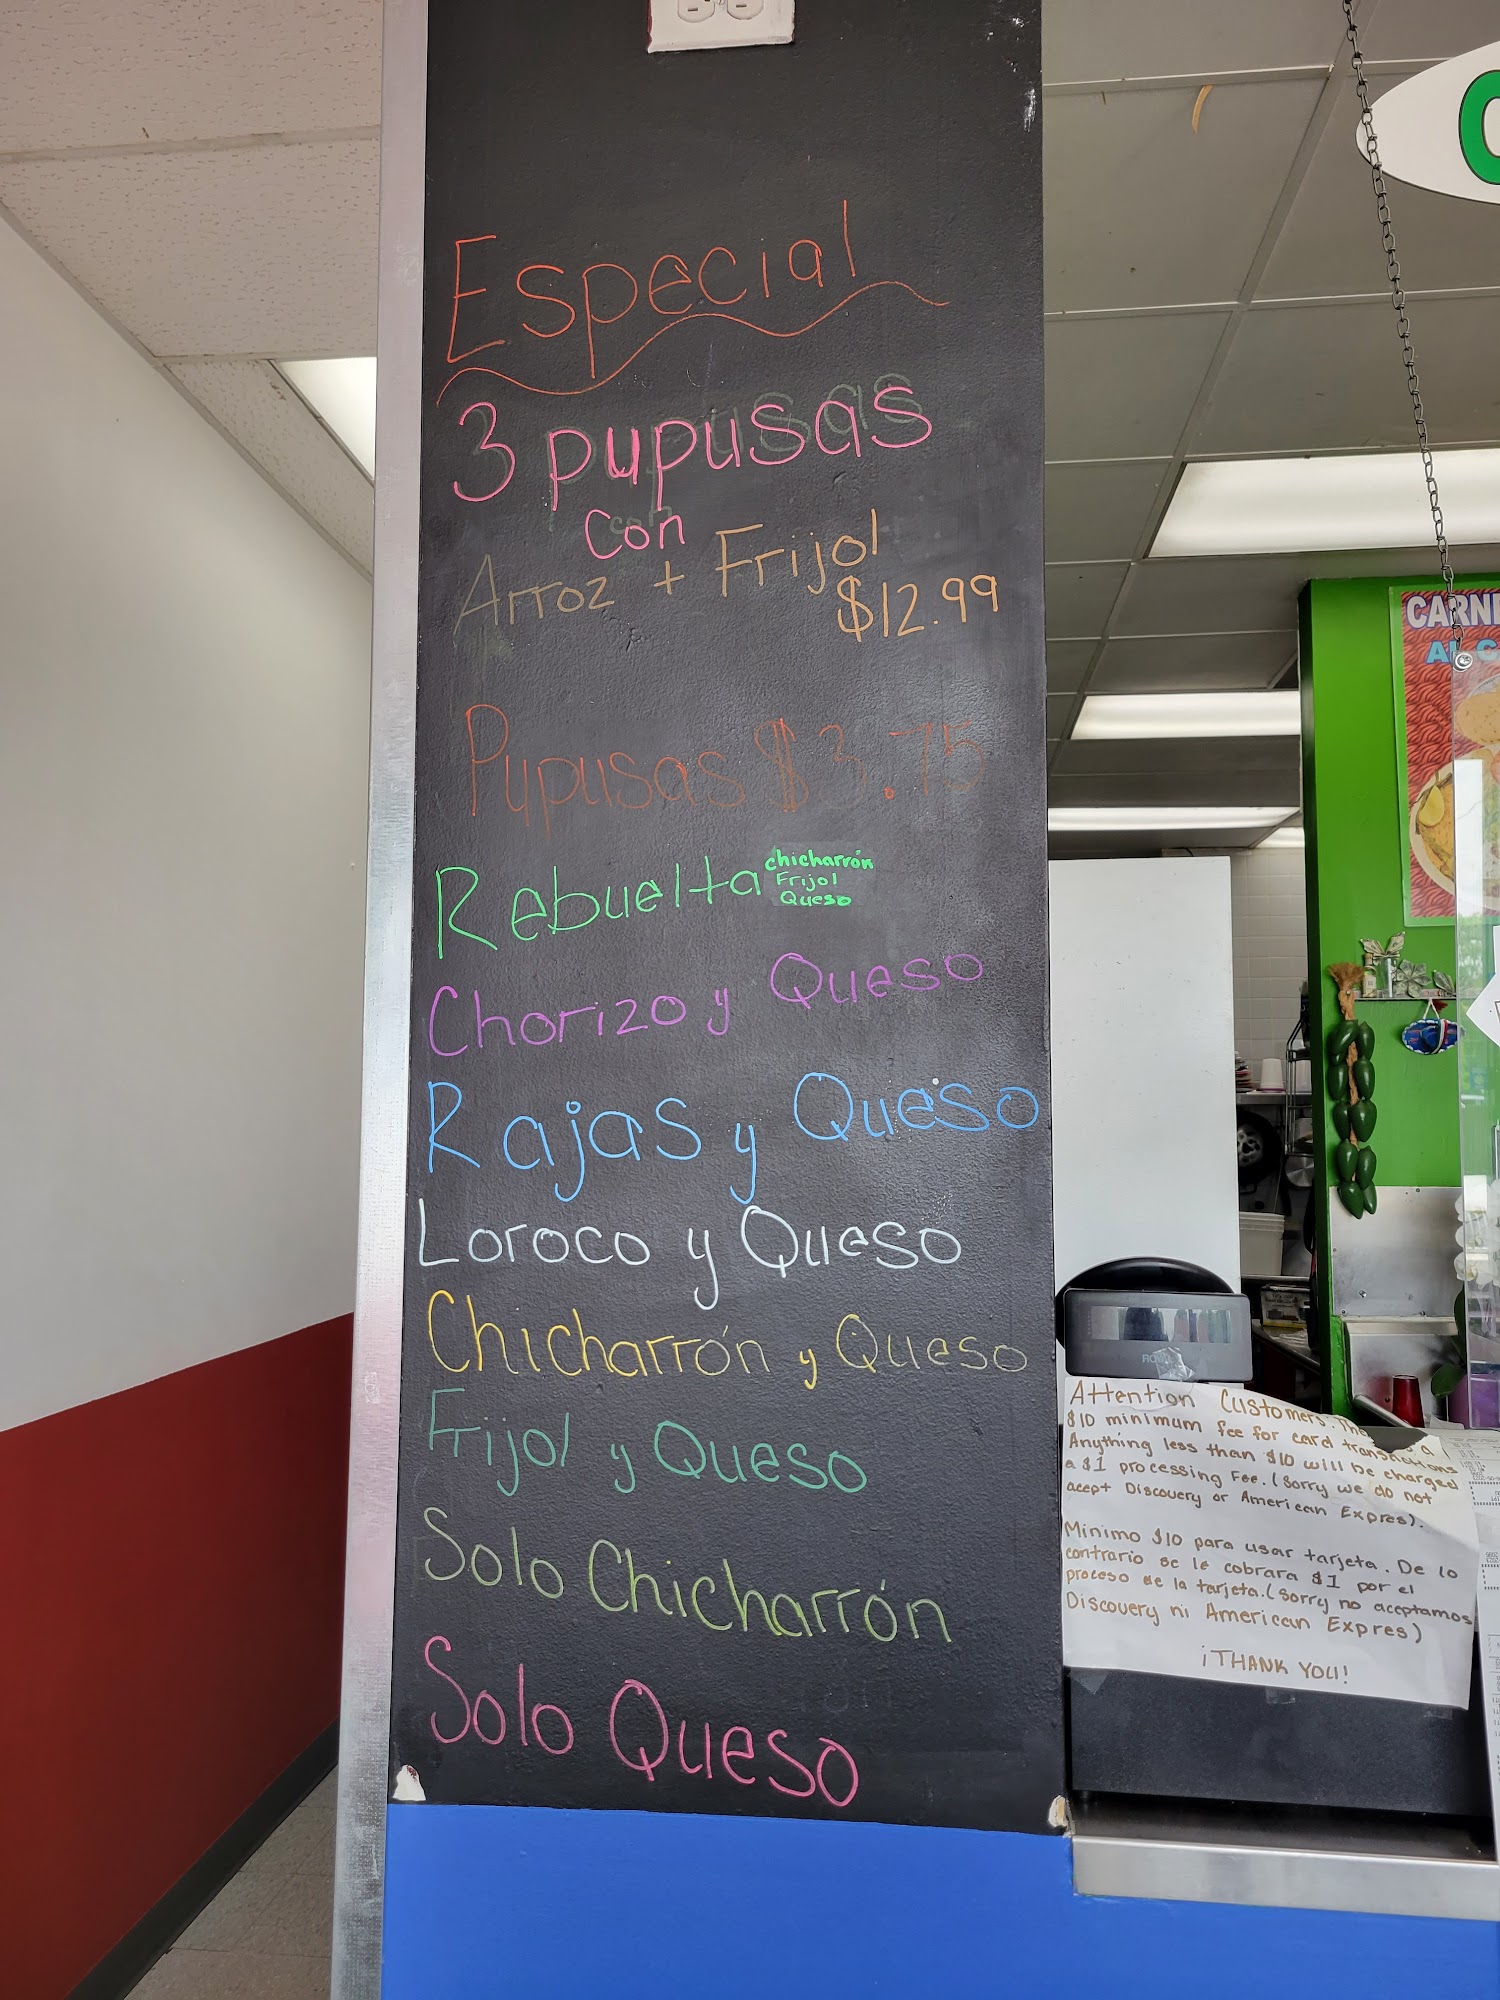 Especial
3 pupusas
con
Arroz + Frijol
$12.99
Pupusas $3.75
Rebuelta
chicharrón
Frijol
Queso
Chorizo y Queso
Rajas y Queso
Loroco y Queso
Chicharrón y Queso
Frijol y Queso
Solo Chicharrón
Solo Queso
CARNE
AL C
Attention Customers.
$10 minimum fee for card transactions
Anything less than $10 will be charged
a $1 processing Fee. (Sorry we do not
acept Discovery or American Expres).
Minimo $10 para usar tarjeta. De lo
contrario se le cobrara $1 por el
proceso de la tarjeta. (Sorry no aceptamos
Discovery ni American Expres)
¡THANK YOU!